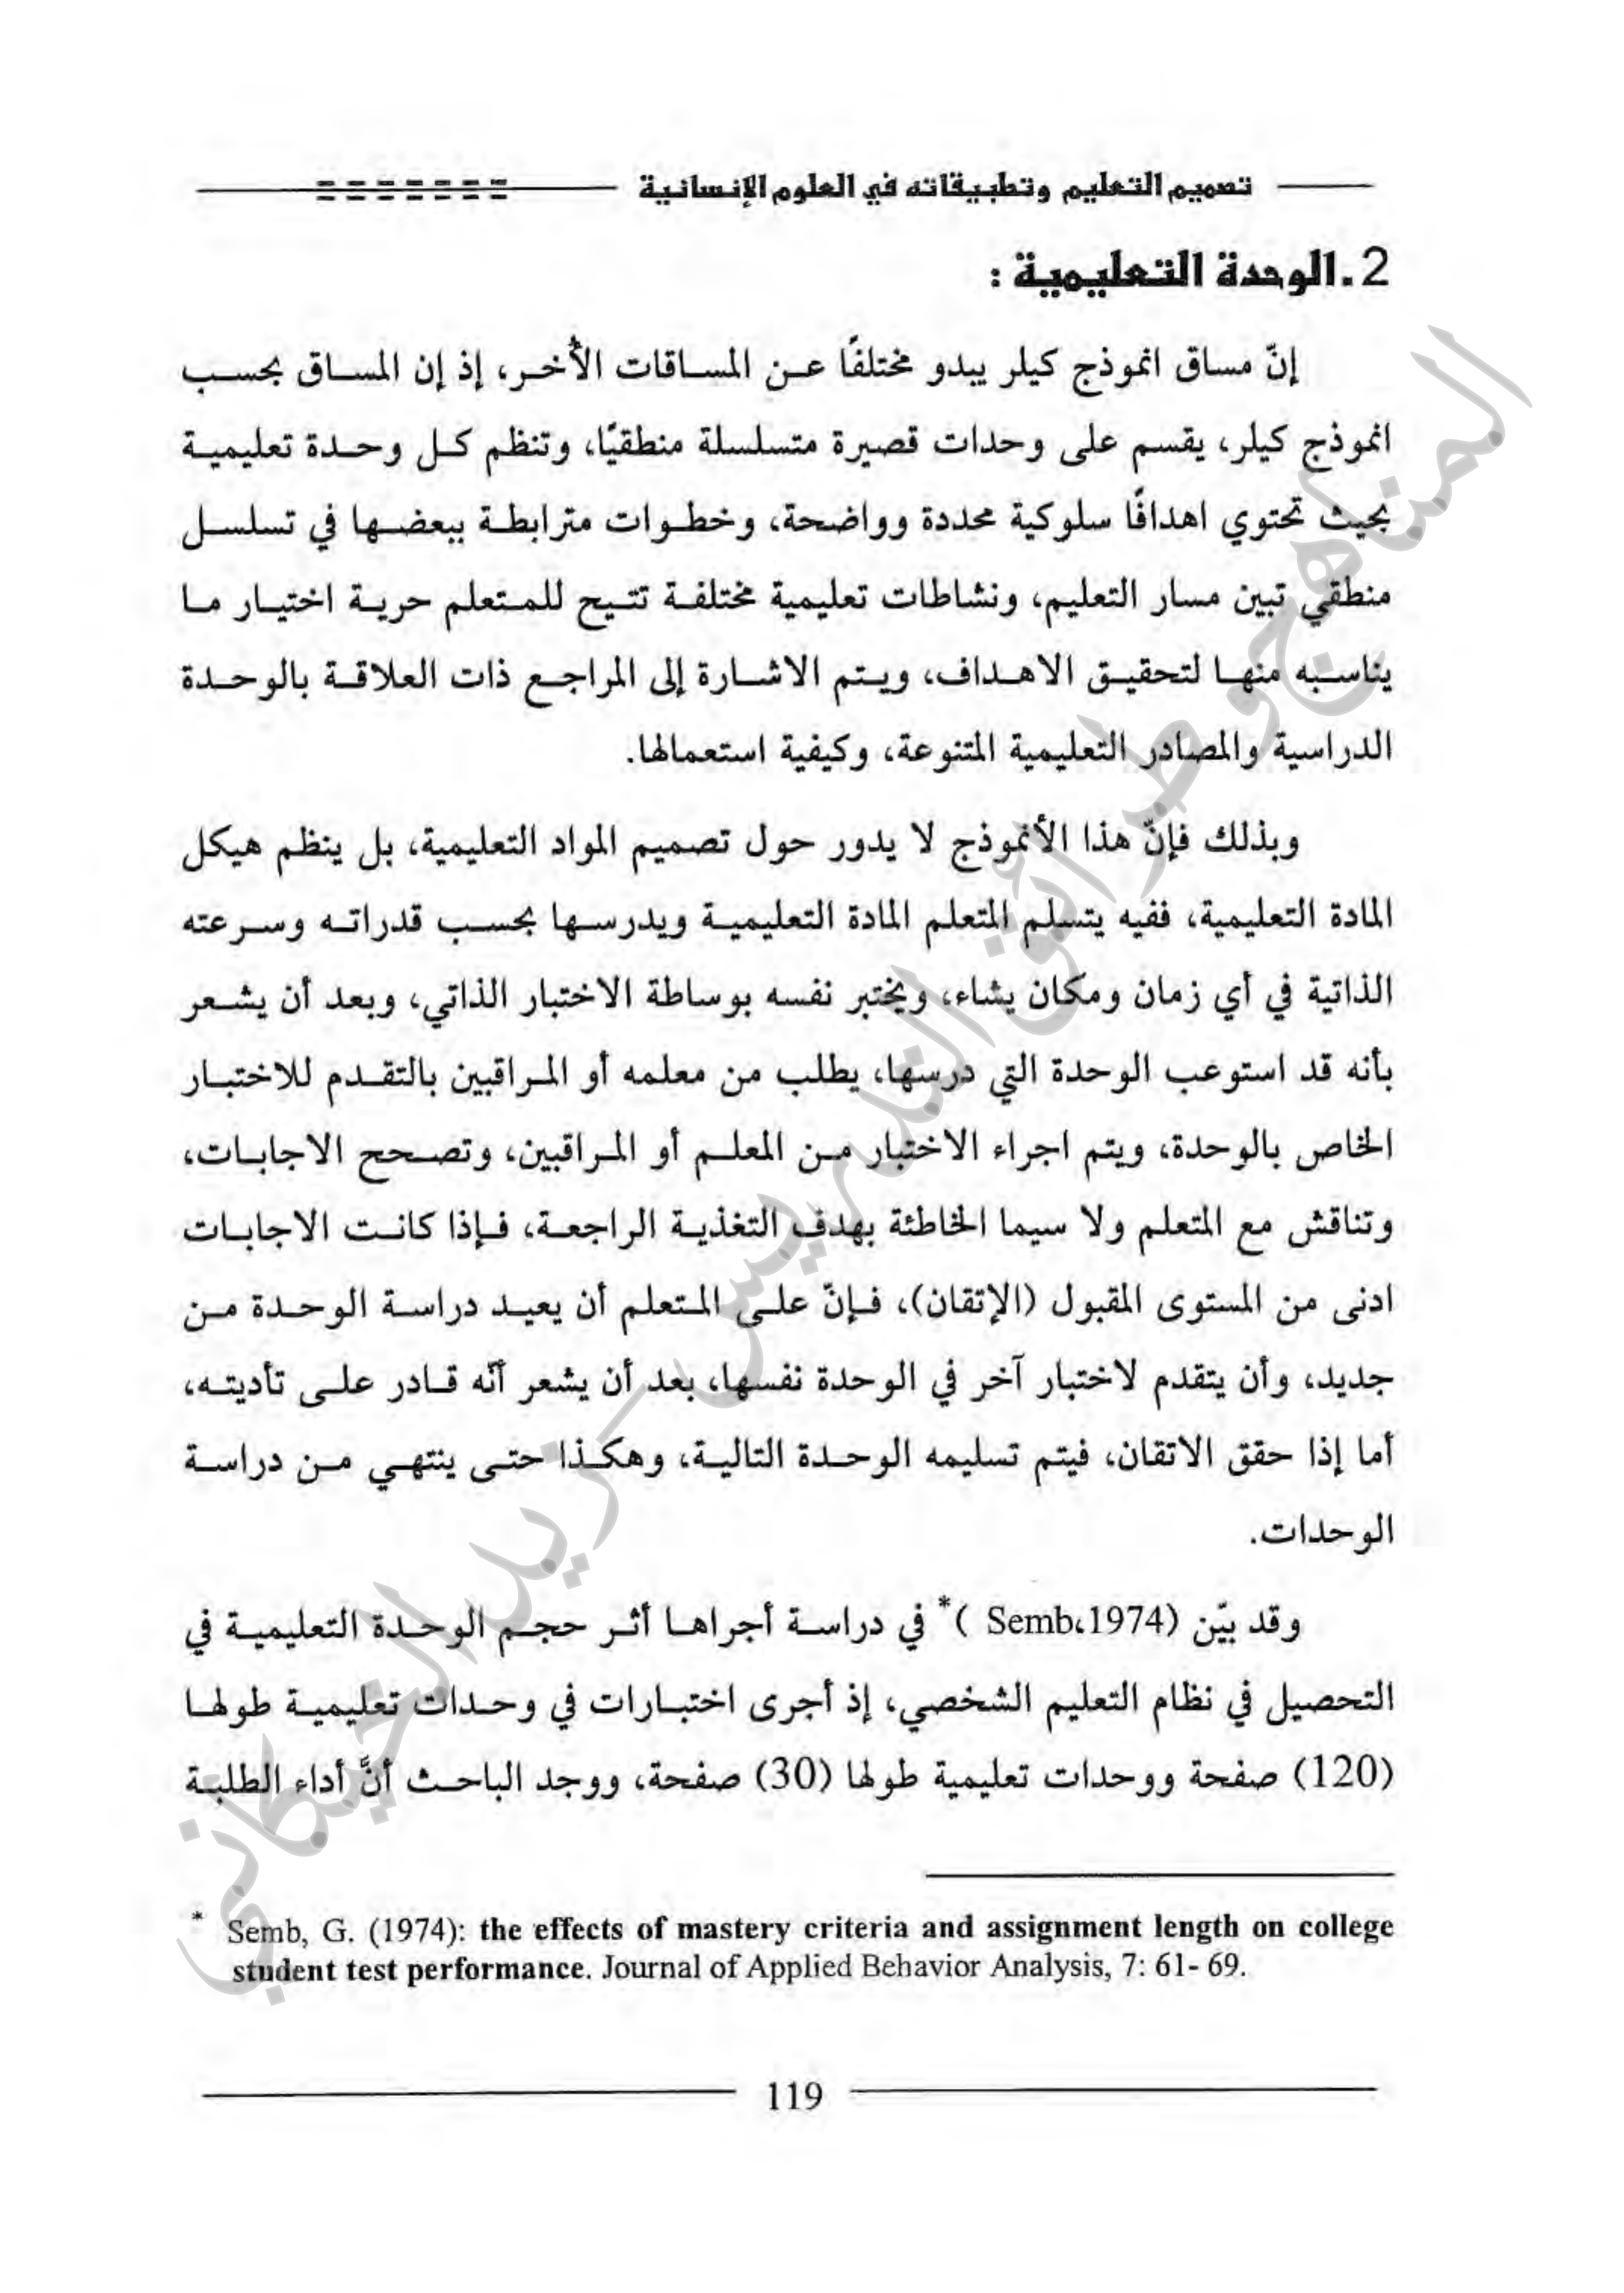 تصميم التعليم وتطبيقاته في العلوم الإنسانية
2.الوحدة التعليمية :
إنّ مساق انموذج كيلر يبدو مختلفًا عن المساقات الأُخر، إذ إن المساق بحسب
انموذج كيلر، يقسم على وحدات قصيرة متسلسلة منطقيًا، وتنظم كل وحدة تعليمية
بحيث تحتوي اهدافًا سلوكية محددة وواضحة، وخطوات مترابطة ببعضها في تسلسل
منطقي تبين مسار التعليم، ونشاطات تعليمية مختلفة تتيح للمتعلم حرية اختيار ما
يناسبه منها لتحقيق الاهداف، ويتم الاشارة إلى المراجع ذات العلاقة بالوحدة
الدراسية والمصادر التعليمية المتنوعة، وكيفية استعمالها.
وبذلك فإنّ هذا الأنموذج لا يدور حول تصميم المواد التعليمية، بل ينظم هيكل
المادة التعليمية، ففيه يتسلم المتعلم المادة التعليمية ويدرسها بحسب قدراته وسرعته
الذاتية في أي زمان ومكان يشاء، ويختبر نفسه بوساطة الاختبار الذاتي، وبعد أن يشعر
بأنه قد استوعب الوحدة التي درسها، يطلب من معلمه أو المراقبين بالتقدم للاختبار
الخاص بالوحدة، ويتم اجراء الاختبار من المعلم أو المراقبين، وتصحح الاجابات،
وتناقش مع المتعلم ولا سيما الخاطئة بهدف التغذية الراجعة، فإذا كانت الاجابات
ادنى من المستوى المقبول (الإتقان)، فإنّ على المتعلم أن يعيد دراسة الوحدة من
جديد، وأن يتقدم لاختبار آخر في الوحدة نفسها، بعد أن يشعر أنّه قادر على تأديته،
أما إذا حقق الاتقان، فيتم تسليمه الوحدة التالية، وهكذا حتى ينتهي من دراسة
الوحدات.
وقد بيّن (Semb،1974 )* في دراسة أجراها أثر حجم الوحدة التعليمية في
التحصيل في نظام التعليم الشخصي، إذ أجرى اختبارات في وحدات تعليمية طولها
(120) صفحة ووحدات تعليمية طولها (30) صفحة، ووجد الباحث أنَّ أداء الطلبة
* Semb, G. (1974): the effects of mastery criteria and assignment length on college
student test performance. Journal of Applied Behavior Analysis, 7: 61- 69.
119
المناهج وطرائق التدريس - زيد الخيكاني